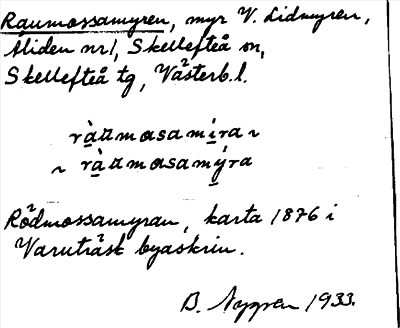 Raumossamyren, myr V. Lidmyren,
Miden nr 1, Skellefteå sn,
Skellefteå tg, Västerb. l.
ràumosamíra ~
~ ràumosamýra
Rödmossamyran, karta 1876 i
Varuträsk byaskrin.
B. 1933.